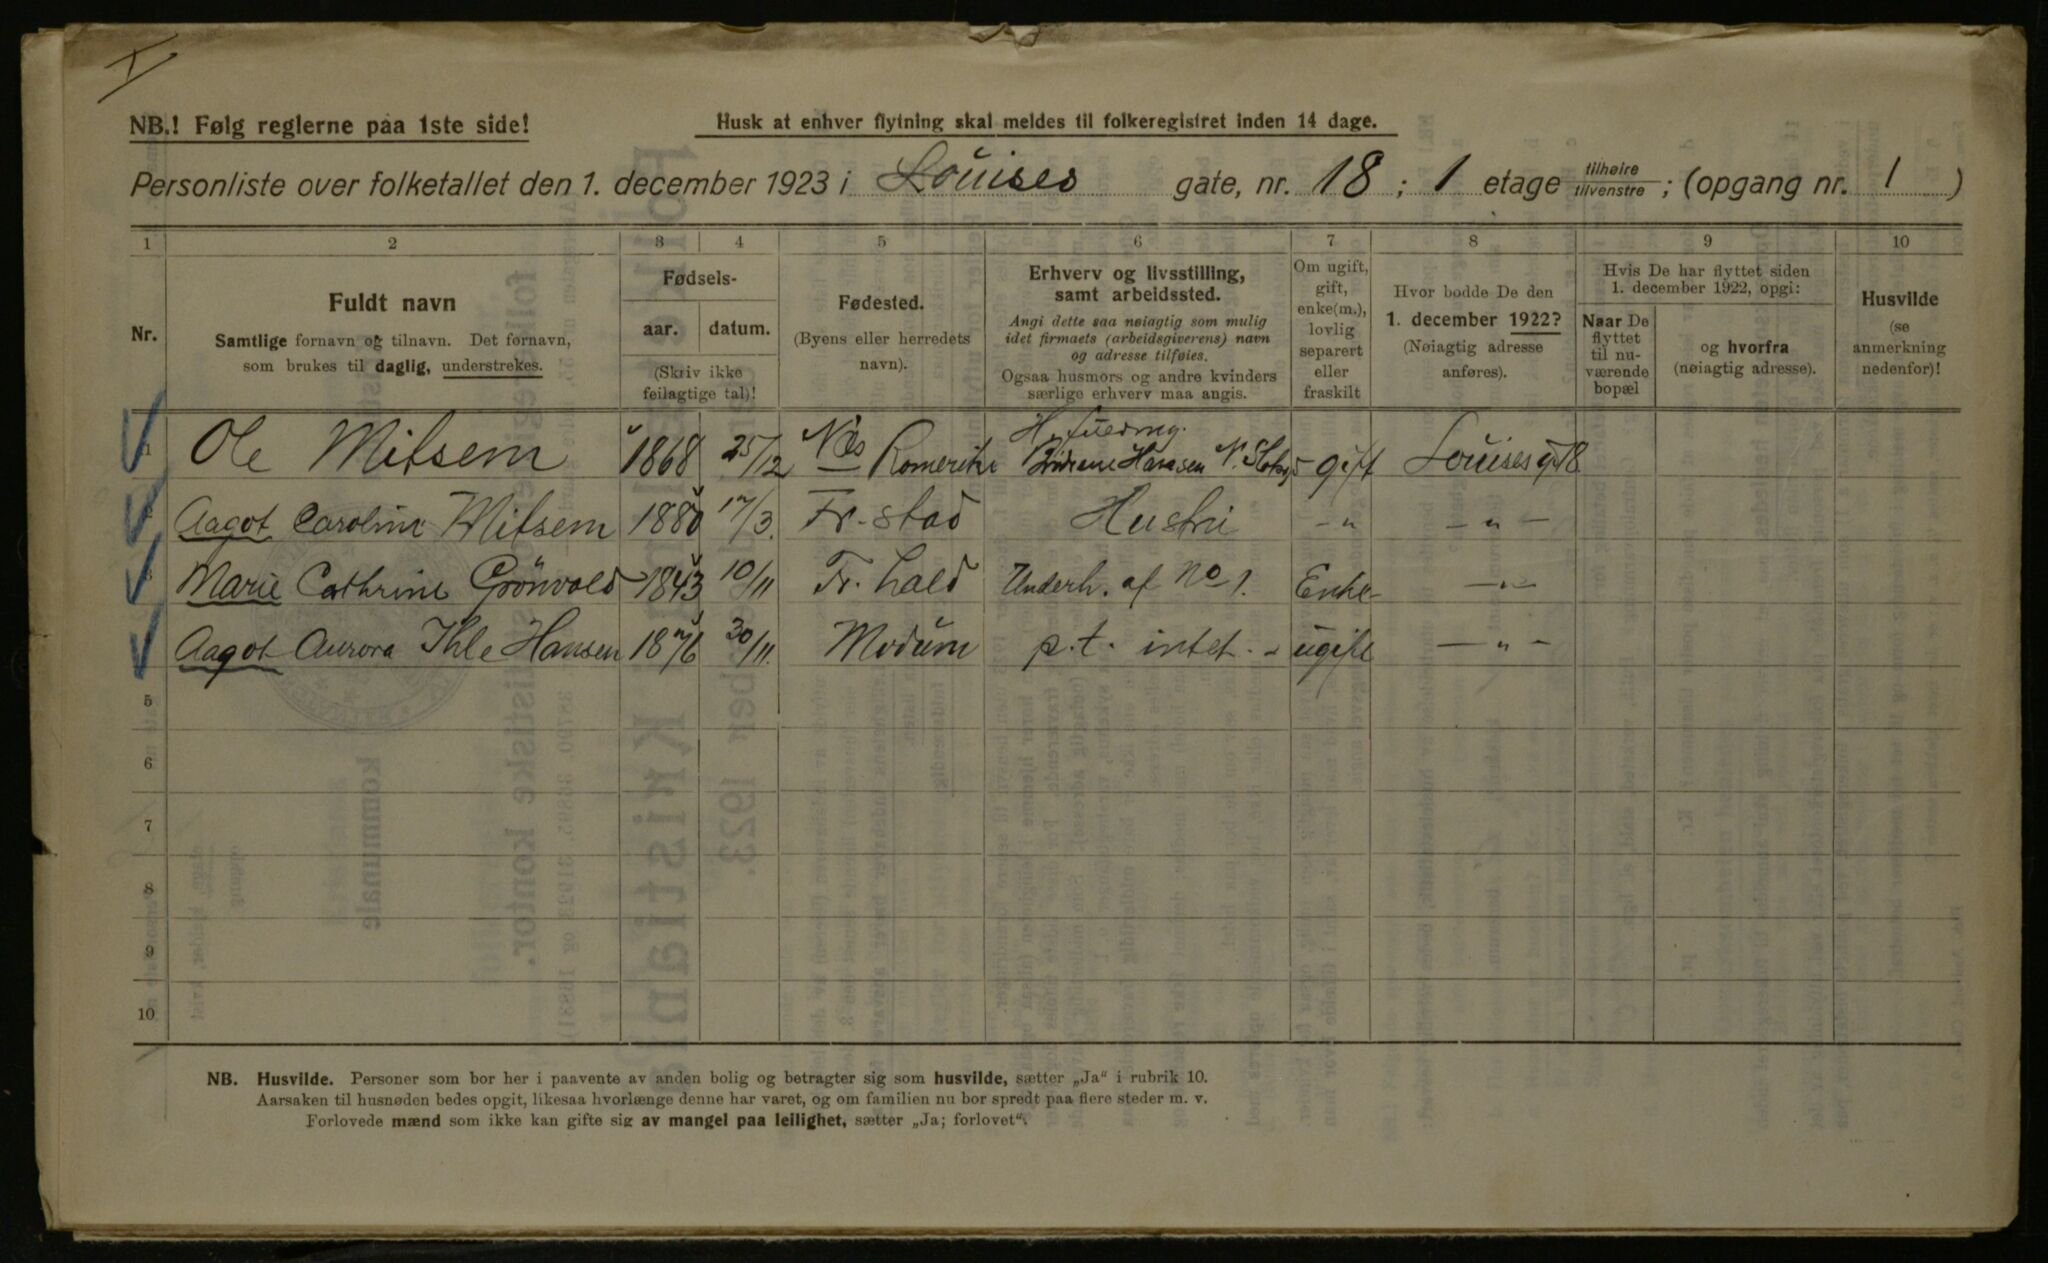 I
NB.! Følg reglerne paa 1ste side!
Husk at enhver flytning skal meldes til folkeregistret inden 14 dage.
Personliste over folketallet den 1. december 1923 i Louises gate, nr. 18 ; 1 etage tilhøire tilvenstre ; (opgang nr. 1 )
1 2 3 4 5 6 7 8 9 10
Nr.
Fuldt navn
Samtlige fornavn og tilnavn. Det fornavn,
som brukes til daglig, understrekes.
Fødsels-
aar. datum.
(Skriv ikke
feilagtige tal)!
Fødested.
(Byens eller herredets
navn).
Erhverv og livsstilling,
samt arbeidssted.
Angi dette saa nøiagtig som mulig
idet firmaets (arbeidsgiverens) navn
og adresse tilføies.
Ogsaa husmors og andre kvinders
særlige erhverv maa angis.
Om ugift,
gift,
enke(m.),
lovlig
separert
eller
fraskilt
Hvor bodde De den
1. december 1922?
(Nøiagtig adresse
anføres).
Hvis De har flyttet siden
1. december 1922, opgi:
Naar De
flyttet
til nu-
værende
bopæl
og hvorfra
(nøiagtig adresse).
Husvilde
(se
anmerkning
nedenfor)!
1 Ole Mitsem 1868 25/12 Næs Romerike Hansen N. gift Louises gt 18
2 Aagot Caroline Mitsem 1880 17/3. Fr.stad Hustru -"- -"-
3 Marie Cathrine Grönvold 1843 10/11 Fr. hald Underh. af No 1. Enke -"-
4 Aagot Aurora Ihle Hansen 1876 30/11. Modum p.t. intet. - ugift -"-
5
6
7
8
9
10
NB. Husvilde. Personer som bor her i paavente av anden bolig og betragter sig som husvilde, sætter „Ja" i rubrik 10.
Aarsaken til husnøden bedes opgit, likesaa hvorlænge denne har varet, og om familien nu bor spredt paa flere steder m. v.
Forlovede mænd som ikke kan gifte sig av mangel paa leilighet, sætter „Ja; forlovet".